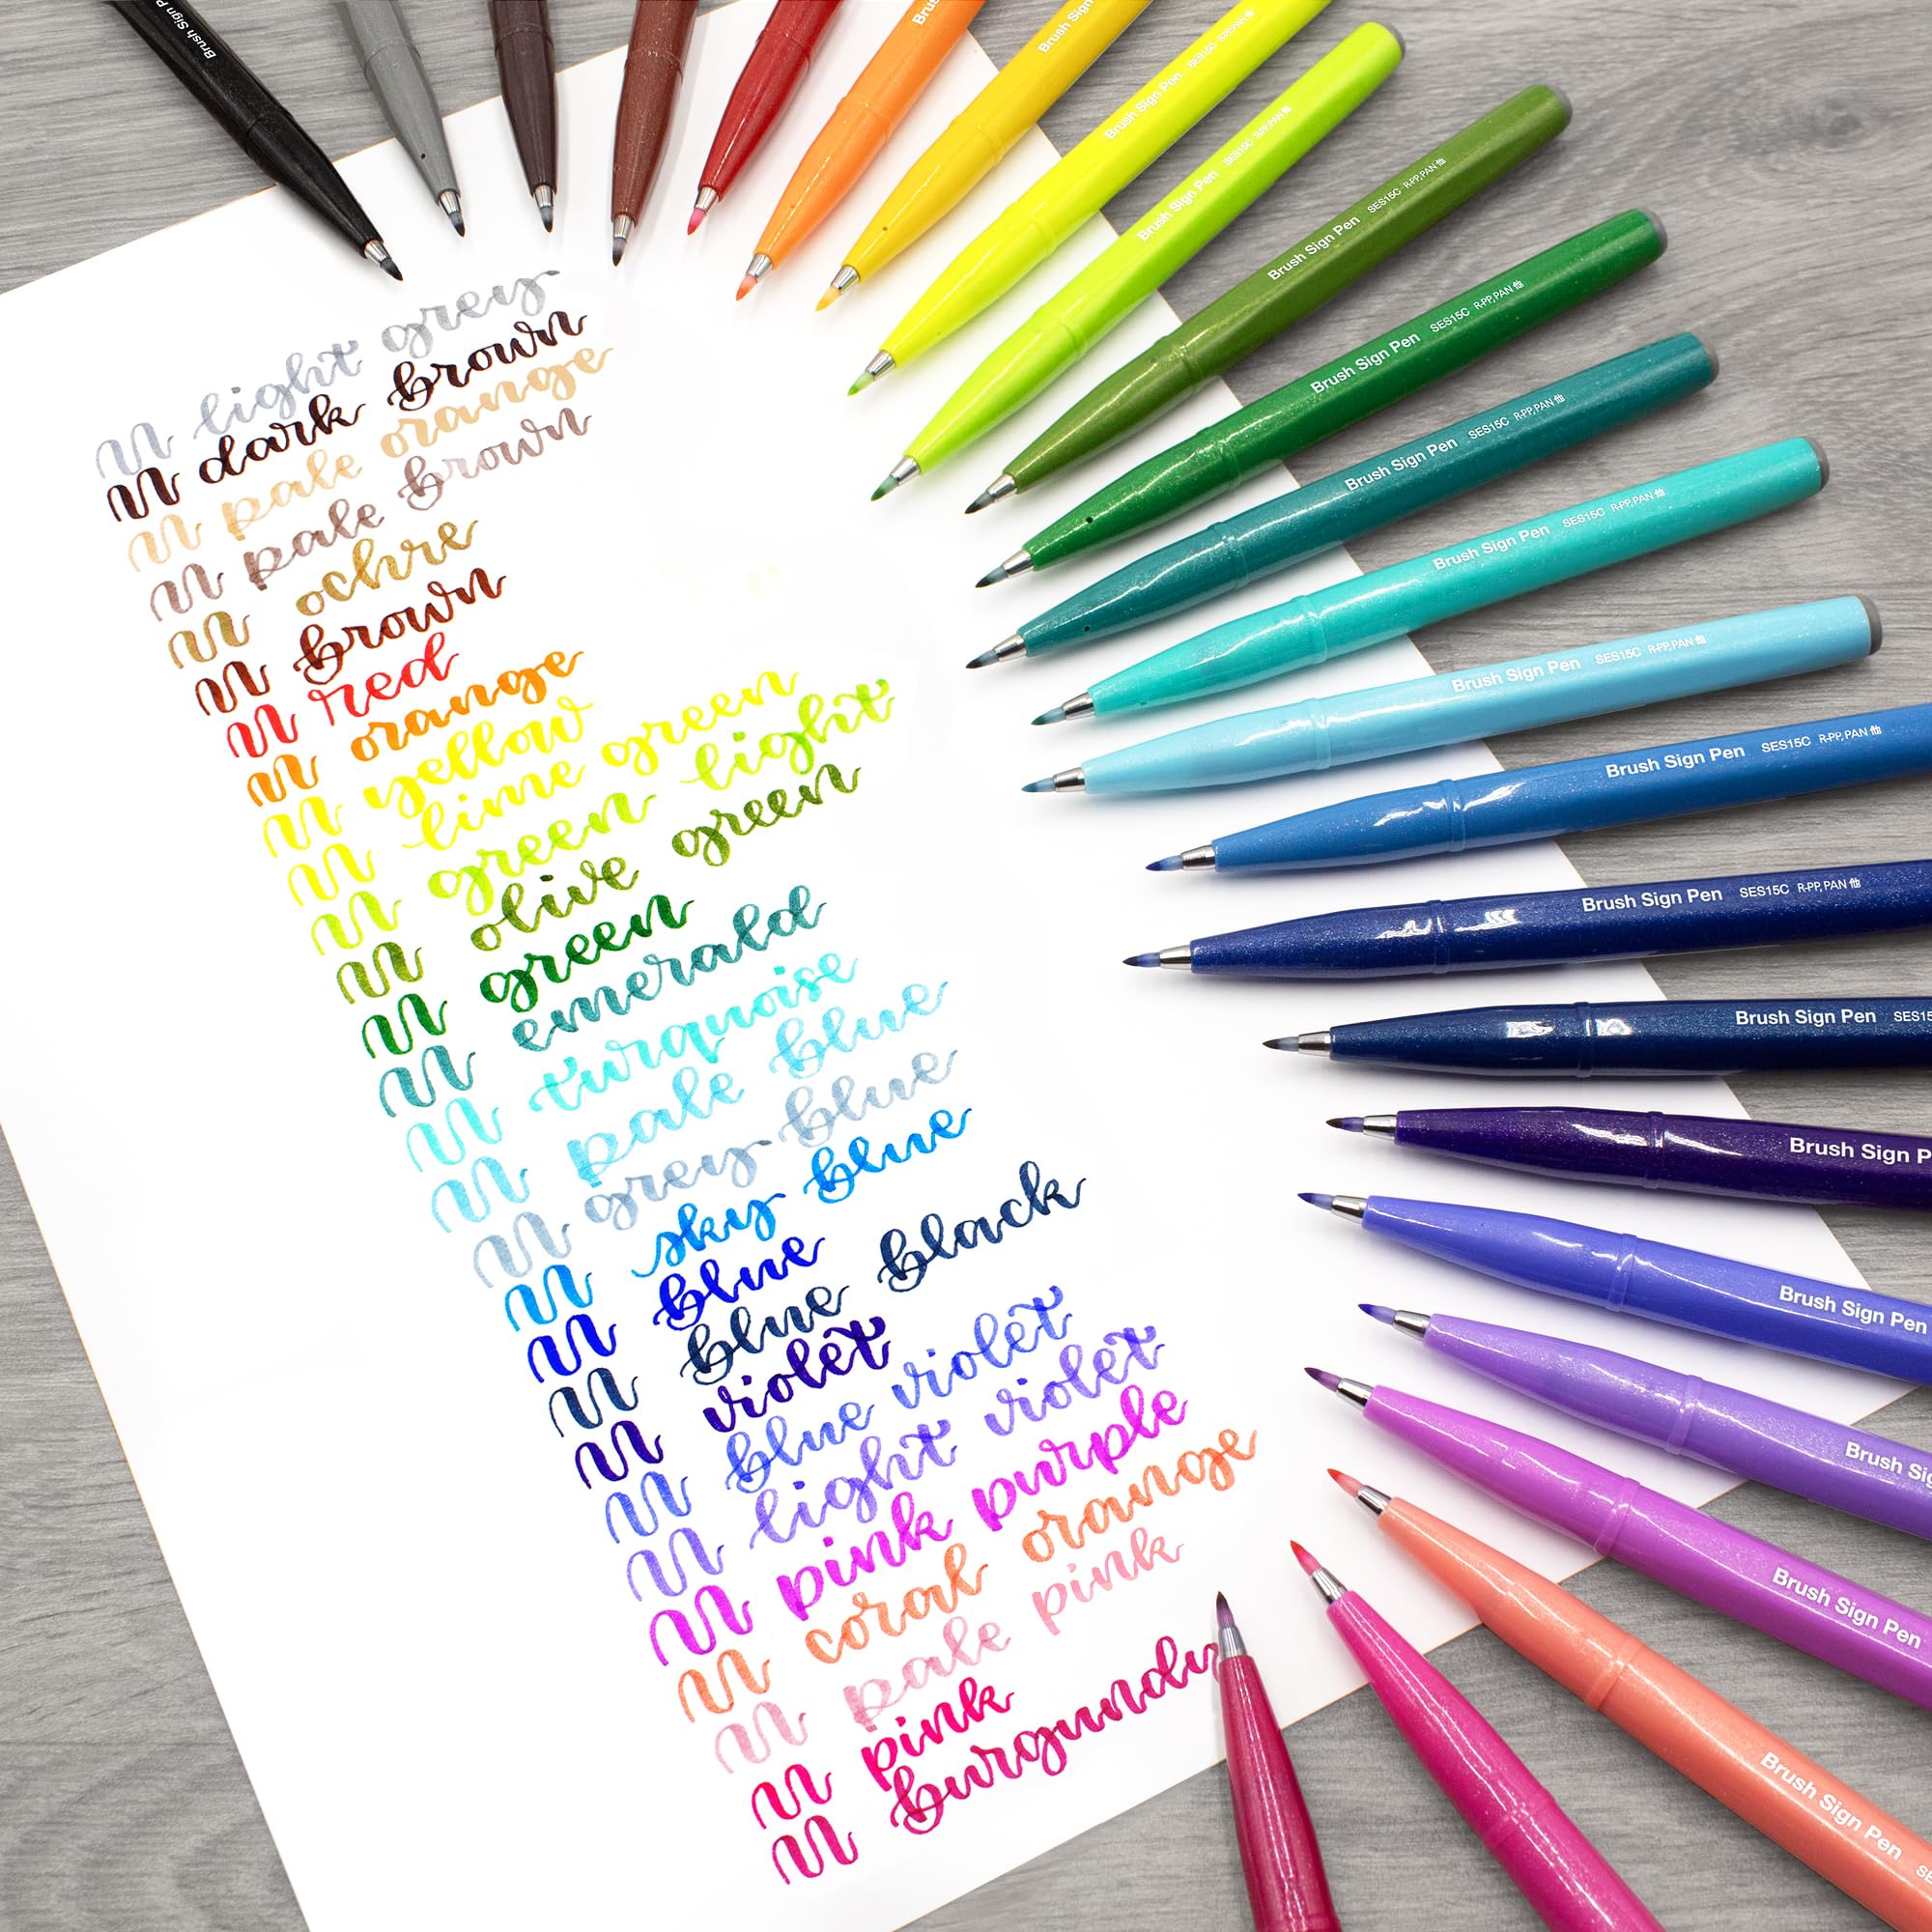 light grey
dark brown
pale orange
pale brown
ochre
brown
red
orange
yellow
lime green
green light
olive green
green
emerald
turquoise
pale blue
grey blue
sky blue
blue
blue black
violet
blue violet
light violet
pink purple
coral orange
pale pink
pink
burgundy
Brush Sign P
Bru
Brush Sign
Brush Sign Pen SES15C R-PP,PAN 他
Brush Sign Pen SES15C R-PP,PAN 他
Brush Sign Pen SES15C R-PP,PAN 他
Brush Sign Pen SES15C R-PP,PAN 他
Brush Sign Pen SES15C R-PP,PAN 他
Brush Sign Pen SES15C R-PP,PAN 他
Brush Sign Pen SES15C R-PP,PAN 他
Brush Sign Pen SES15C R-PP,PAN 他
Brush Sign Pen SES15C R-PP,PAN 他
Brush Sign Pen SES15
Brush Sign P
Brush Sign Pen
Brush Sig
Brush Sign Pen
Brush Sign Pen SE